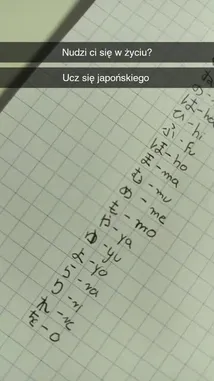 Nudzi ci się w życiu?
Ucz się japońskiego
の -
は - ha
ひ - hi
ふ - fu
ほ - ho
ま - ma
む - mu
め - me
も - mo
や - ya
ゆ - yu
よ - yo
ら - ra
り - ri
れ - re
を - o